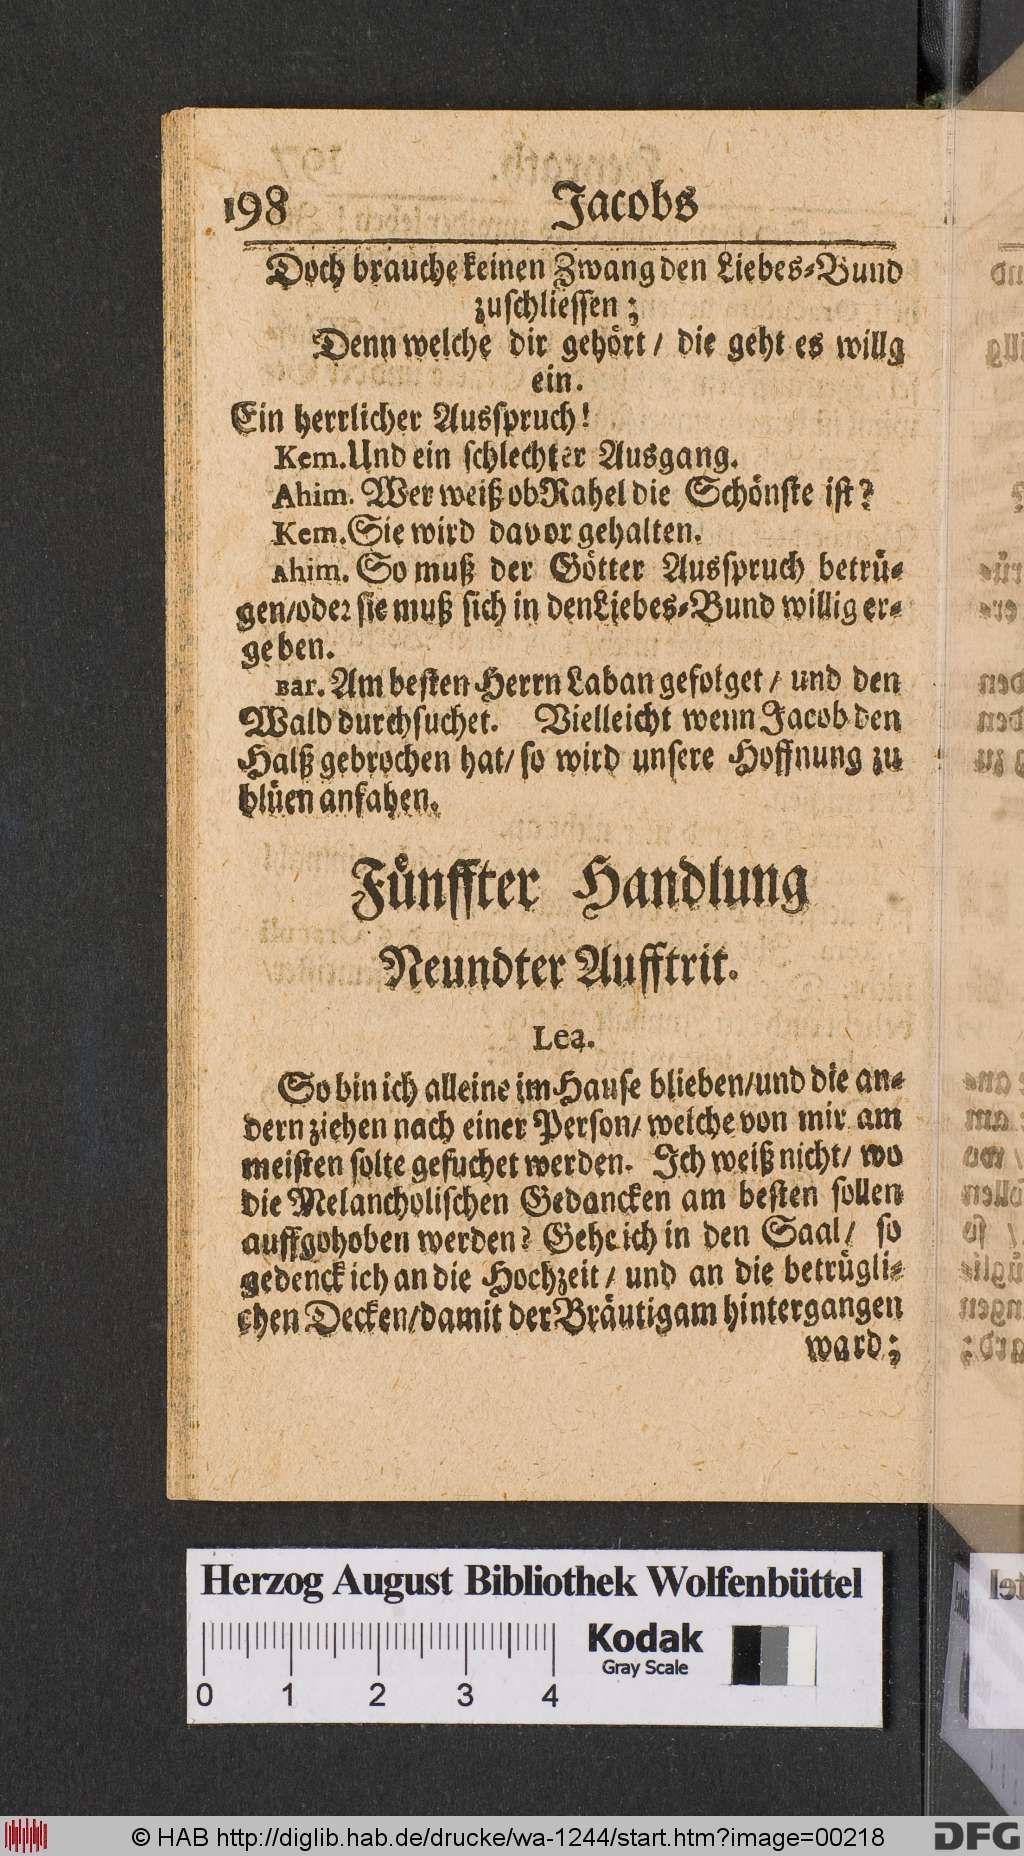 198 Jacobs
Doch brauche keinen Zwang den Liebes-Bund
zuschliessen;
Denn welche dir gehört / die geht es willg
ein.
Ein herrlicher Ausspruch!
Kem. Und ein schlechter Ausgang.
Ahim. Wer weiß ob Rahel die Schönste ist?
Kem. Sie wird davor gehalten.
Ahim. So muß der Götter Ausspruch betrü-
gen/oder sie muß sich in den Liebes-Bund willig er-
geben.
Bar. Am besten Herrn Laban gefolget / und den
Wald durchsuchet. Vielleicht wenn Jacob den
Halß gebrochen hat/ so wird unsere Hoffnung zu
blüen anfahen.
Fünffter Handlung
Neundter Aufftrit.
Lea.
So bin ich alleine im Hause blieben/und die an-
dern ziehen nach einer Person/ welche von mir am
meisten solte gesuchet werden. Ich weiß nicht/ wo
die Melancholischen Gedancken am besten sollen
auffgohoben werden? Gehe ich in den Saal/ so
gedenck ich an die Hochzeit / und an die betrügli-
chen Decken/damit der Bräutigam hintergangen
ward;
Herzog August Bibliothek Wolfenbüttel
Kodak
Gray Scale
0 1 2 3 4
© HAB http://diglib.hab.de/drucke/wa-1244/start.htm?image=00218
DFG